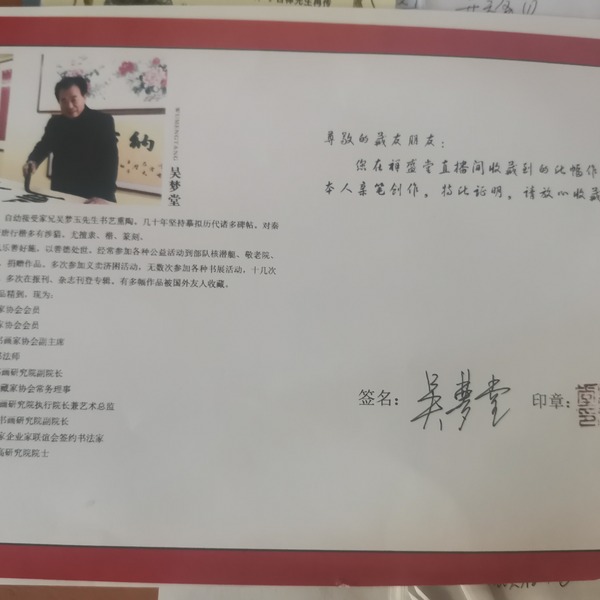 WUMENGTANG
吴梦堂
自幼接受家兄吴梦玉先生书艺熏陶，几十年坚持摹拟历代诸多碑帖，对秦
行楷多有涉猎。尤擅隶、楷、篆刻。
乐善好施，以善德处世。经常参加各种公益活动到部队核潜艇、敬老院、
捐赠作品。多次参加义卖济困活动，无数次参加各种书展活动，十几次
多次在报刊、杂志刊登专辑。有多幅作品被国外友人收藏。
品精到。现为：
家协会会员
家协会会员
书画家协会副主席
书法师
书画研究院副院长
藏家协会常务理事
画研究院执行院长兼艺术总监
书画研究院副院长
家企业家联谊会签约书法家
高研究院院士
尊敬的藏友朋友：
您在祥盛堂直播间收藏到的此幅作
本人亲笔创作。特此证明。请放心收藏
签名：吴梦堂 印章：